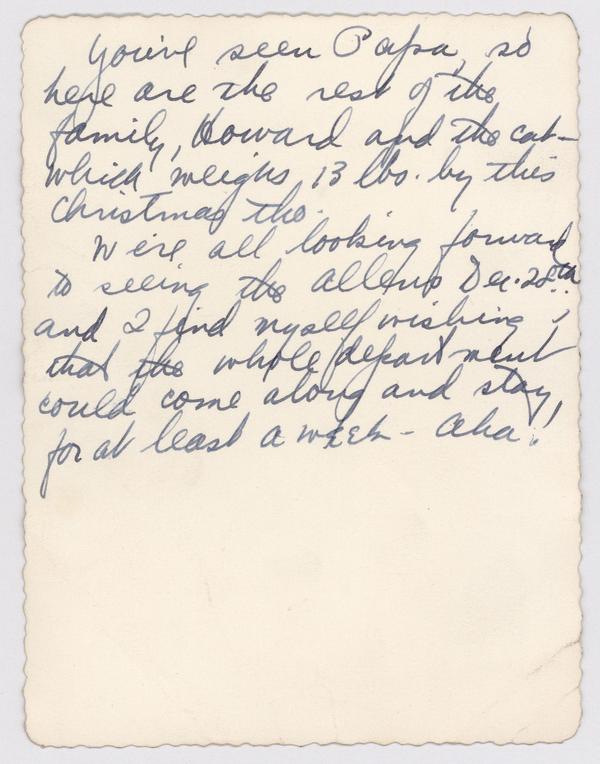 You've seen Papa, so
here are the rest of the
family, Howard and the cat—
which weighs 13 lbs. by this
Christmas tho.
We're all looking forward
to seeing the Allens Dec. 28th
and I find myself wishing
that the whole department
could come along and stay,
for at least a week — Aha!